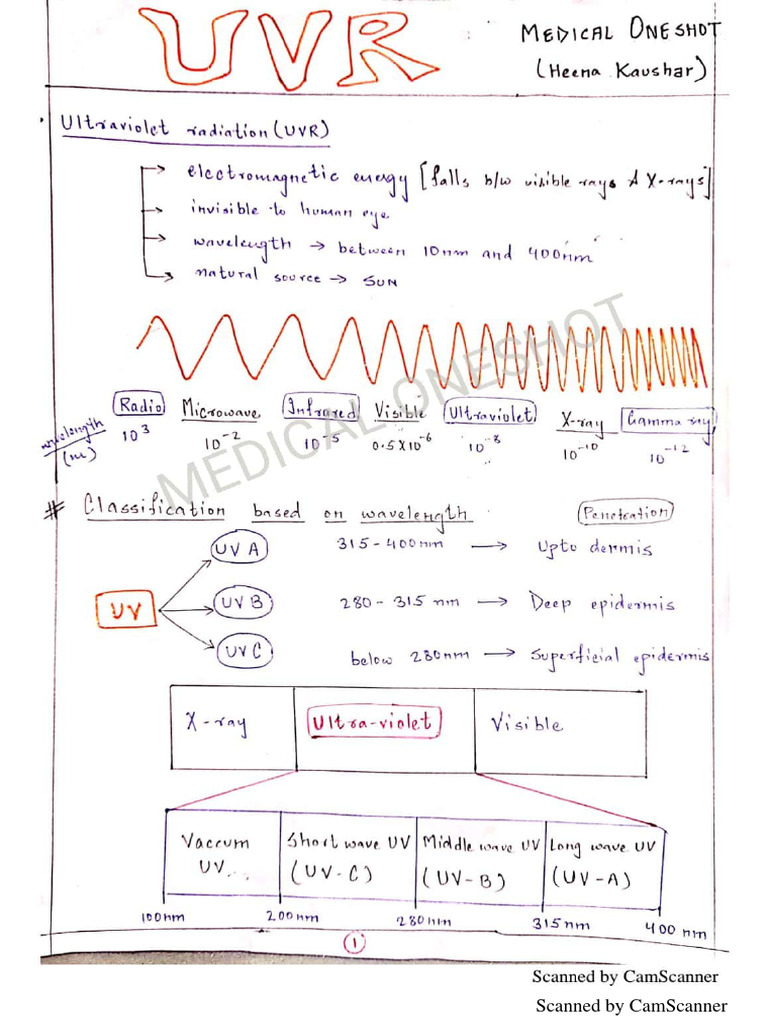 UVR
MEDICAL ONESHOT
(Heena Kaushar)
Ultraviolet radiation (UVR)
electromagnetic energy [falls b/w visible rays & X-rays]
invisible to human eye
wavelength → between 10nm and 400nm
natural source → SUN
MEDICAL ONESHOT
wavelength (m)
Radio Microwave Infrared Visible Ultraviolet X-ray Gamma ray
10³ 10⁻² 10⁻⁵ 0.5X10⁻⁶ 10⁻⁸ 10⁻¹⁰ 10⁻¹²
# Classification based on wavelength Penetration
UV A 315-400nm → Upto dermis
UV
UV B 280-315 nm → Deep epidermis
UV C below 280nm → Superficial epidermis
X-ray Ultra-violet Visible
Vaccum UV... Short wave UV (UV-C) Middle wave UV (UV-B) Long wave UV (UV-A)
100nm 200nm 280nm 315nm 400 nm
1
Scanned by CamScanner
Scanned by CamScanner